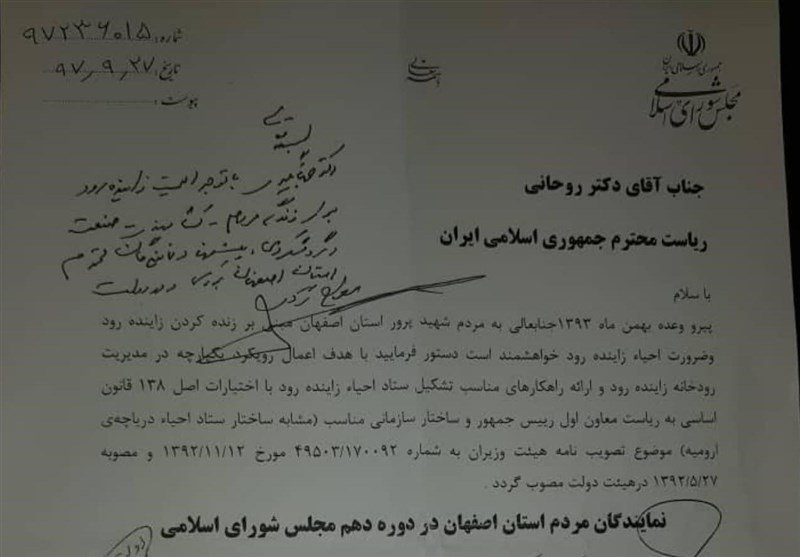 جمهوری اسلامی ایران
مجلس شورای اسلامی
شماره: 97236015
تاریخ: ۹۷/۹/۲۷
پیوست:
بسمه تعالی
جناب آقای دکتر روحانی
ریاست محترم جمهوری اسلامی ایران
با توجه اهمیت زاینده رود
برای زندگی مردم - کشاورزی - صنعت
و گردشگری، پیشنهاد نمایندگان محترم
استان اصفهان بررسی و در دولت
مطرح گردد
با سلام
پیرو وعده بهمن ماه ۱۳۹۳جنابعالی به مردم شهید پرور استان اصفهان مبنی بر زنده کردن زاینده رود
وضرورت احیاء زاینده رود خواهشمند است دستور فرمایید با هدف اعمال رویکرد یکپارچه در مدیریت
رودخانه زاینده رود و ارائه راهکارهای مناسب تشکیل ستاد احیاء زاینده رود با اختیارات اصل ۱۳۸ قانون
اساسی به ریاست معاون اول رییس جمهور و ساختار سازمانی مناسب (مشابه ساختار ستاد احیاء دریاچه‌ی
ارومیه) موضوع تصویب نامه هیئت وزیران به شماره ۴۹۵۰۳/۱۷۰۰۹۲ مورخ ۱۳۹۲/۱۱/۱۲ و مصوبه
۱۳۹۲/۵/۲۷ درهیئت دولت مصوب گردد .
نمایندگان مردم استان اصفهان در دوره دهم مجلس شورای اسلامی